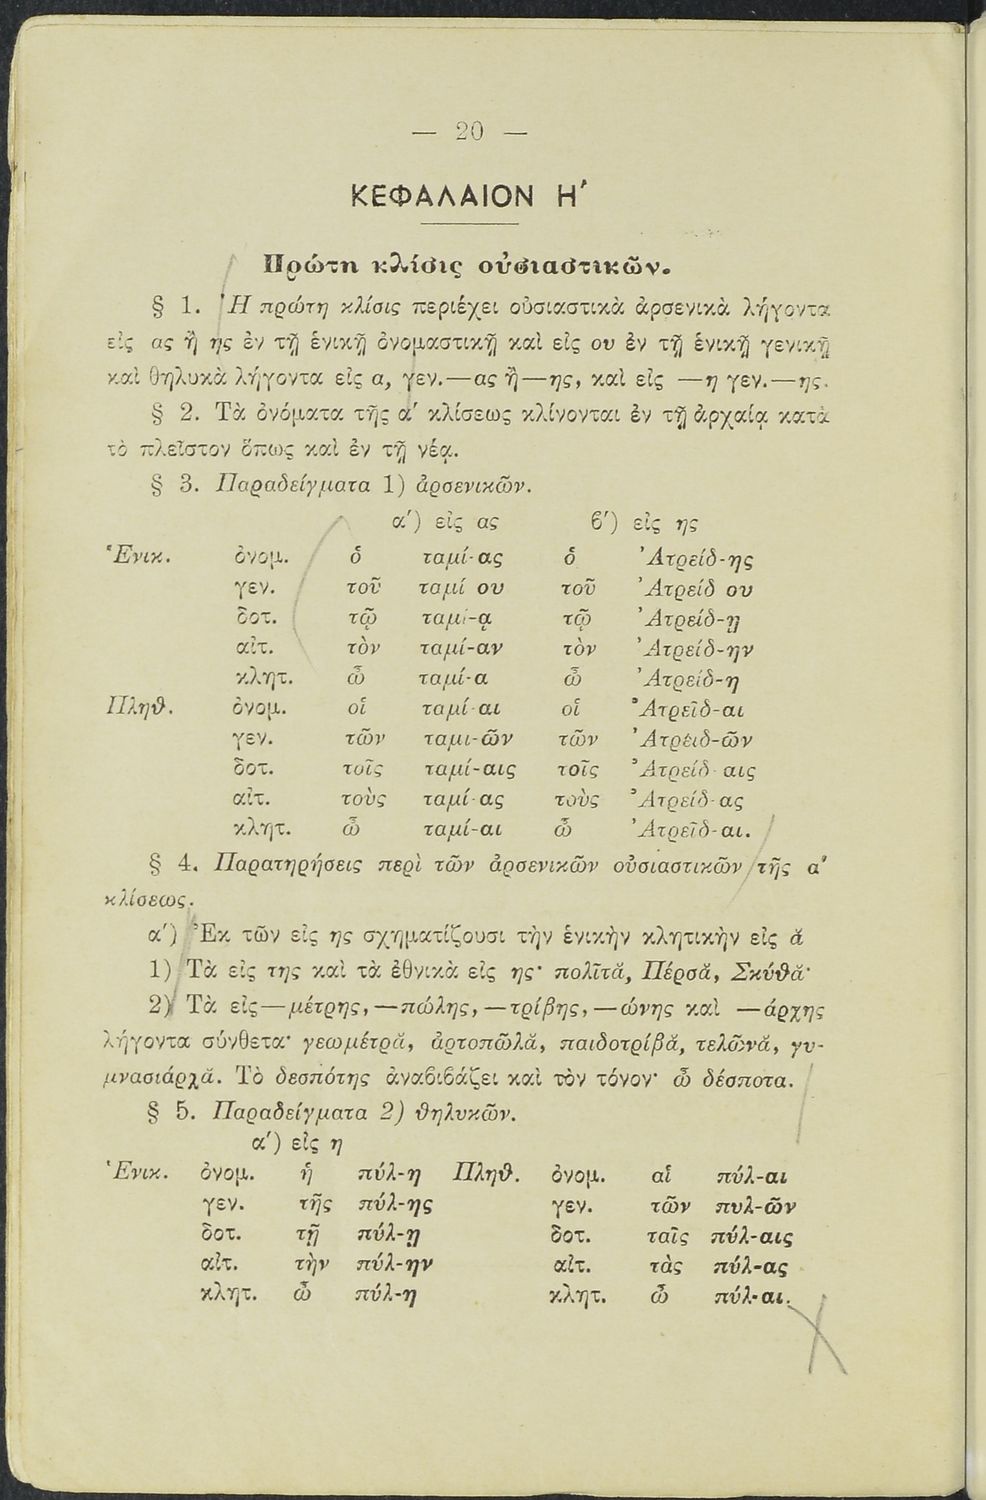 — 20 —
ΚΕΦΑΛΑΙΟΝ Η΄
Πρώτη κλίσις οὐσιαστικῶν.
§ 1. Ἡ πρώτη κλίσις περιέχει οὐσιαστικὰ ἀρσενικὰ λήγοντα
εἰς ας ἢ ης ἐν τῇ ἑνικῇ ὀνομαστικῇ καὶ εἰς ου ἐν τῇ ἑνικῇ γενικῇ
καὶ θηλυκὰ λήγοντα εἰς α, γεν.—ας ἢ—ης, καὶ εἰς —η γεν.—ης.
§ 2. Τὰ ὀνόματα τῆς α΄ κλίσεως κλίνονται ἐν τῇ ἀρχαίᾳ κατὰ
τὸ πλεῖστον ὅπως καὶ ἐν τῇ νέᾳ.
§ 3. Παραδείγματα 1) ἀρσενικῶν.
α΄) εἰς ας β΄) εἰς ης
Ἑνικ. ὀνομ. ὁ ταμί-ας ὁ Ἀτρείδ-ης
γεν. τοῦ ταμί ου τοῦ Ἀτρείδ ου
δοτ. τῷ ταμί-ᾳ τῷ Ἀτρείδ-ῃ
αἰτ. τὸν ταμί-αν τὸν Ἀτρείδ-ην
κλητ. ὦ ταμί-α ὦ Ἀτρείδ-η
Πληθ. ὀνομ. οἱ ταμί-αι οἱ Ἀτρεῖδ-αι
γεν. τῶν ταμι-ῶν τῶν Ἀτρειδ-ῶν
δοτ. τοῖς ταμί-αις τοῖς Ἀτρείδ αις
αἰτ. τοὺς ταμί-ας τοὺς Ἀτρείδ-ας
κλητ. ὦ ταμί-αι ὦ Ἀτρεῖδ-αι.
§ 4. Παρατηρήσεις περὶ τῶν ἀρσενικῶν οὐσιαστικῶν τῆς α΄
κλίσεως.
α΄) Ἐκ τῶν εἰς ης σχηματίζουσι τὴν ἑνικὴν κλητικὴν εἰς ᾰ
1) Τὰ εἰς της καὶ τὰ ἐθνικὰ εἰς ης· πολῖτᾰ, Πέρσᾰ, Σκύθᾰ·
2) Τὰ εἰς—μέτρης,—πώλης,—τρίβης,—ώνης καὶ —άρχης
λήγοντα σύνθετα· γεωμέτρᾰ, ἀρτοπῶλᾰ, παιδοτρίβᾰ, τελῶνᾰ, γυ-
μνασιάρχᾰ. Τὸ δεσπότης ἀναβιβάζει καὶ τὸν τόνον· ὦ δέσποτα.
§ 5. Παραδείγματα 2) θηλυκῶν.
α΄) εἰς η
Ἑνικ. ὀνομ. ἡ πύλ-η Πληθ. ὀνομ. αἱ πύλ-αι
γεν. τῆς πύλ-ης γεν. τῶν πυλ-ῶν
δοτ. τῇ πύλ-ῃ δοτ. ταῖς πύλ-αις
αἰτ. τὴν πύλ-ην αἰτ. τὰς πύλ-ας
κλητ. ὦ πύλ-η κλητ. ὦ πύλ-αι.